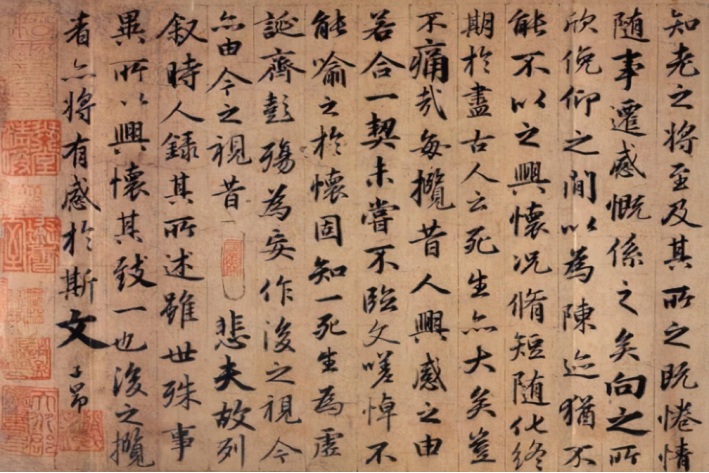 知老之將至及其所之既惓情
随事遷感慨係之矣向之所
欣俛仰之閒以為陳迹猶不
能不以之興懷況脩短随化終
期於盡古人云死生亦大矣豈
不痛哉每攬昔人興感之由
若合一契未嘗不臨文嗟悼不
能喻之於懷固知一死生為虛
誕齊彭殤為妄作後之視今
亦由今之視昔 悲夫故列
叙時人録其所述雖世殊事
異所以興懷其致一也後之攬
者亦將有感於斯文 子昂